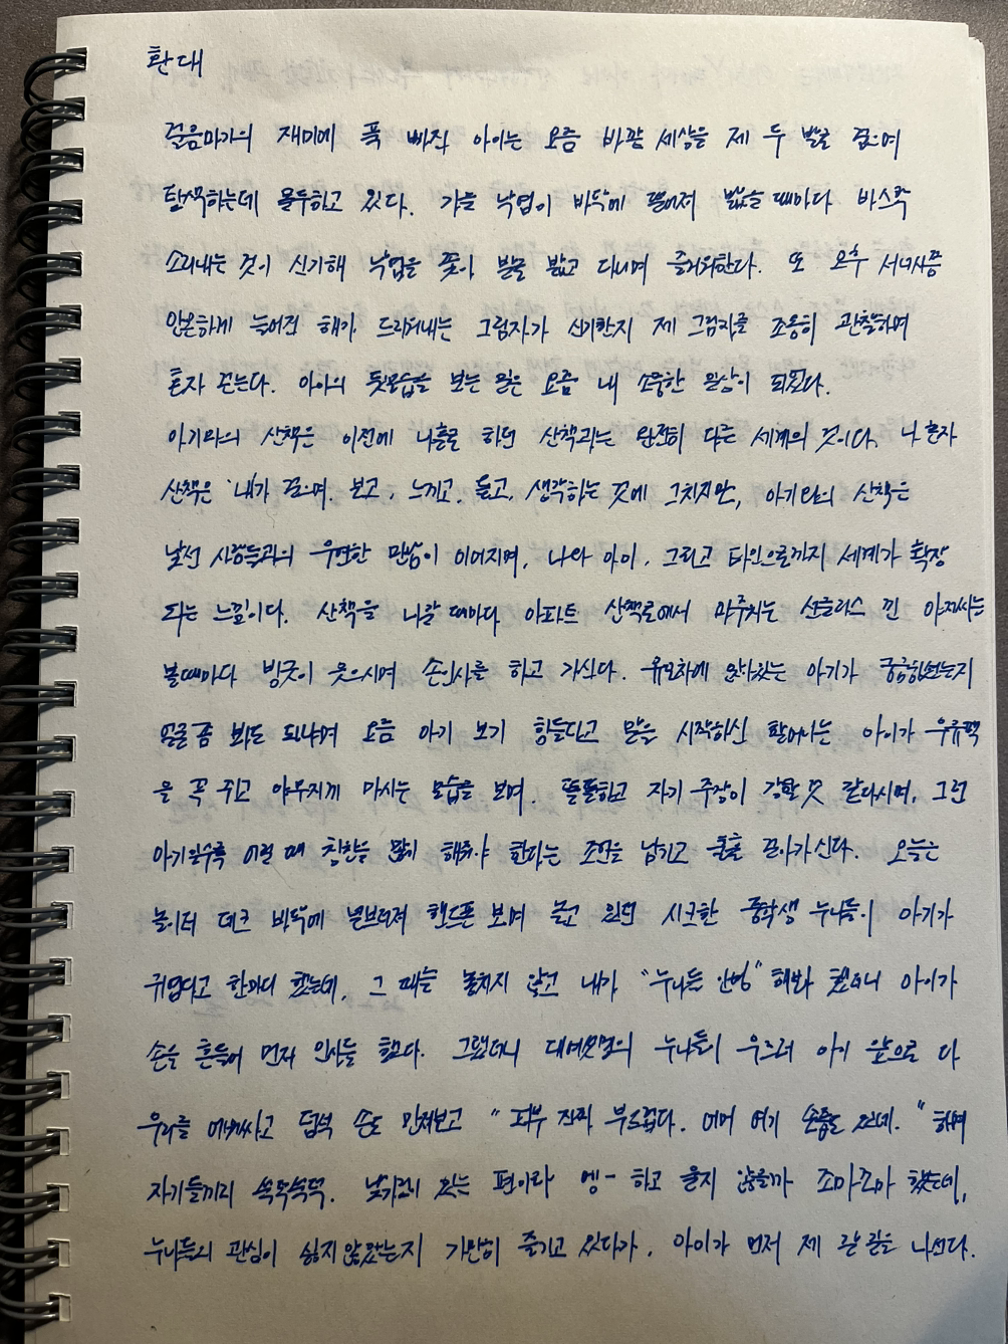 환대
걸음마가의 재미에 푹 빠진 아이는 요즘 바깥 세상을 제 두 발로 걸으며
탐색하는데 몰두하고 있다. 가을 낙엽이 바닥에 떨어져 밟을 때마다 바스락
소리내는 것이 신기해 낙엽을 쫓아 발로 밟고 다니며 즐거워한다. 또 오후 서너시쯤
안온하게 늘어진 해가 드리워내는 그림자가 신기한지 제 그림자를 조용히 관찰하며
혼자 걷는다. 아이의 뒷모습을 보는 일은 요즘 내 소중한 일상이 되었다.
아기와의 산책은 이전에 나홀로 하던 산책과는 완전히 다른 세계의 것이다. 나 혼자
산책은 내가 걸으며, 보고, 느끼고, 듣고, 생각하는 것에 그치지만, 아기와의 산책은
낯선 사람들과의 우연한 만남이 이어지며, 나와 아이, 그리고 타인으로까지 세계가 확장
되는 느낌이다. 산책을 나갈 때마다 아파트 산책로에서 마주치는 선글라스 낀 아저씨는
볼때마다 빙긋이 웃으시며 손인사를 하고 가신다. 유모차에 앉아있는 아기가 궁금하셨는지
얼굴 좀 봐도 되냐며 요즘 아기 보기 힘들다고 말을 시작하신 할머니는 아이가 우유팩
을 꼭 쥐고 야무지게 마시는 모습을 보며, 똘똘하고 자기 주장이 강할 것 같다시며, 그런
아기일수록 어릴 때 칭찬을 많이 해줘야 한다는 조언을 남기고 훌훌 걸어가신다. 오늘은
놀이터 데크 바닥에 널브러져 핸드폰 보며 놀고 있던 시크한 중학생 누나들이 아기가
귀엽다고 한마디 했는데, 그 때를 놓치지 않고 내가 "누나들 안녕" 해봐 했더니 아이가
손을 흔들어 먼저 인사를 했다. 그랬더니 대여섯명의 누나들이 우르르 아기 앞으로 다
우리를 에워싸고 덥석 손도 만져보고 "피부 진짜 부드럽다. 어머 여기 손톱도 있네." 하며
자기들끼리 쑥덕쑥덕. 낯가림이 있는 편이라 엥- 하고 울지 않을까 조마조마 했는데,
누나들의 관심이 싫지 않았는지 가만히 즐기고 있다가, 아이가 먼저 제 갈 길을 나선다.